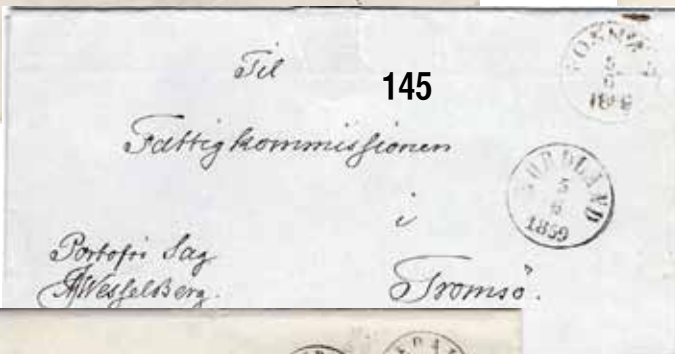 Til
145
Fattigkommissionen
i
Tromsö.
Portofri Sag
AWesselberg.
NORDLAND
5
6
1859